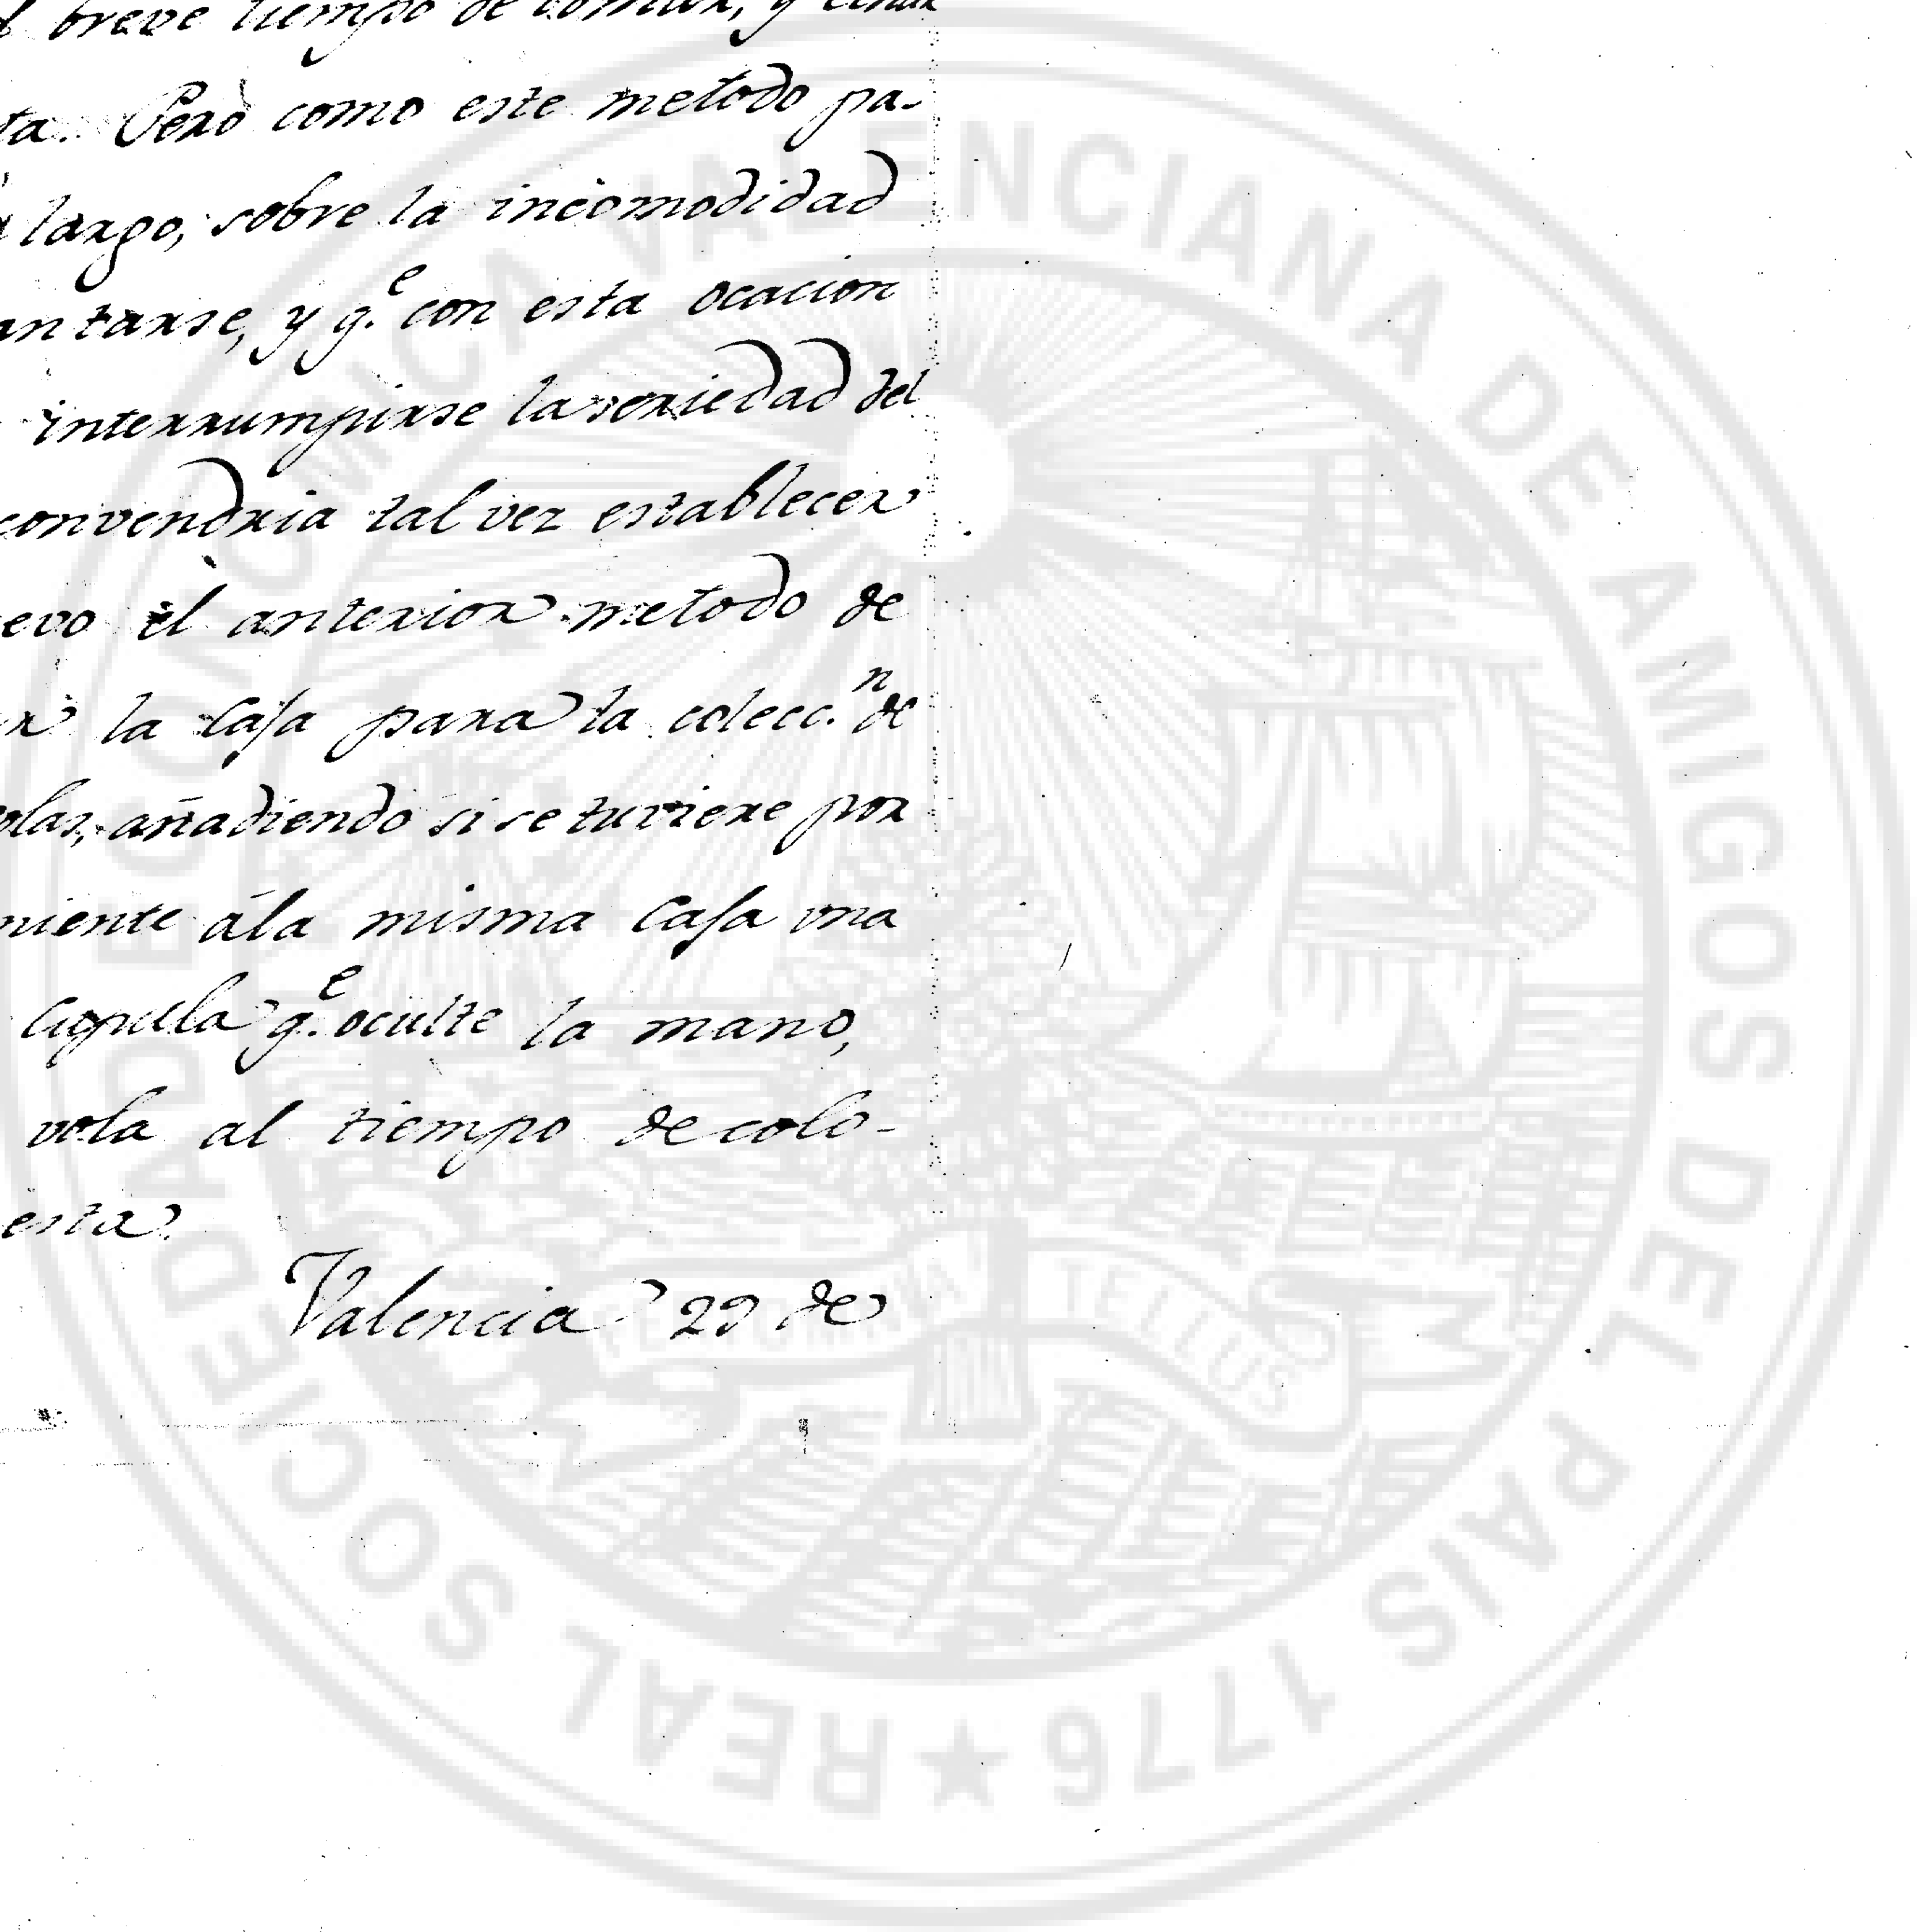 breve tiempo de
ta. Però como este metodo pa-
largo, sobre la incomodidad
antarse, y q.e con esta ocacion
interrumpirse la seriedad del
convendria tal vez establecer
evo el anterior metodo de
r la Casa para la colecc.n de
olas, añadiendo si se tuviere por
niente á la misma Casa una
Cupula q.e oculte la mano,
vola al tiempo de colo-
esta.
Valencia 29 de
REAL SOCIEDAD ECONOMICA VALENCIANA DE AMIGOS DEL PAIS 1776